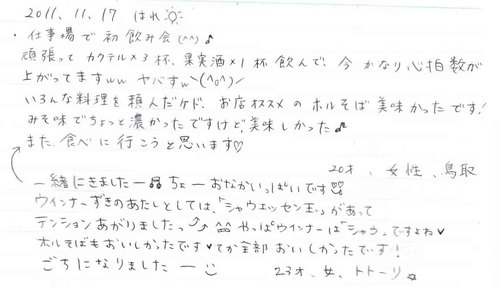 2011.11.17 はれ☼
・仕事場で初飲み会(^^)♪
頑張ってカクテル×3杯、果実酒×1杯飲んで、今かなり心拍数が
上がってますww ヤバすw＼(^o^)／
いろんな料理を頼んだケド、お店オススメのホルそば美味かったです!
みそ味でちょっと濃かったですけど、美味しかった♪
また食べに行こうと思います♡
20才、女性、鳥取
一緒にきましたー ちょーおなかいっぱいです
ウインナーずきのあたしとしては、「シャウエッセン王」があって
テンションあがりましたっ⤴⤴ ^^ やっぱウインナーは「シャウ」ですよね♥
ホルそばもおいしかったです♥てか全部おいしかったです!
ごちになりましたー
23才、女、トトーリ☆